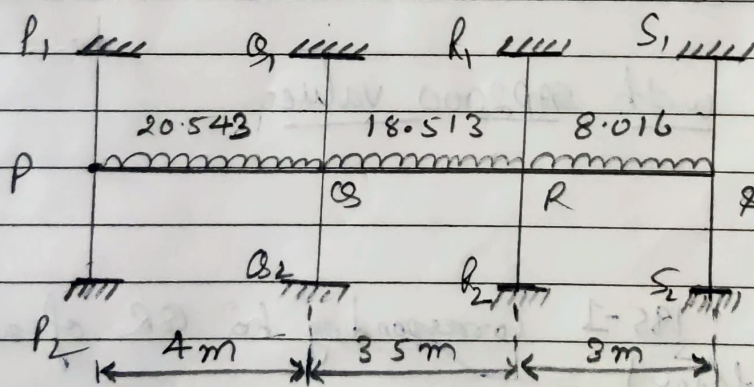 P1 Q1 R1 S1
20.543 18.513 8.016
P Q R
Q2 R2 S2
P2 4m 3 5m 3m